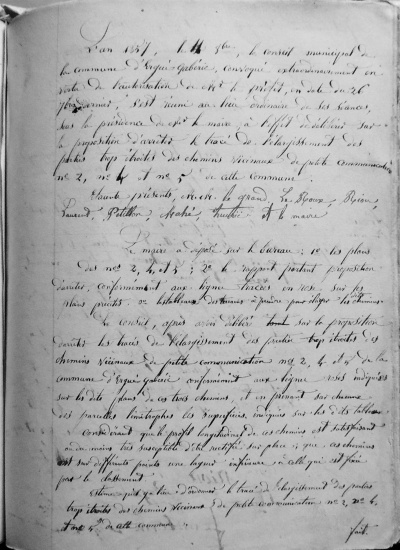 L'an 1857, le 11 8bre, le conseil municipal de
la commune d'Ergué-Gabéric, convoqué extraordinairement en
vertu de l'autorisation de Mr le préfet, en date du 26
7bre dernier, s'est réuni au lieu ordinaire de ses séances,
sous la présidence de Mr le maire, à l'effet de délibérer sur
la proposition d'arrêter le tracé de l'élargissement des
parties trop étroites des chemins vicinaux de petite communication
nos 2, no 4 et no 5 de cette commune.
Etaient présents, M.M. le grand, Le Roux,
Laurent, Pétillon, Mahé, et le maire
Le maire a déposé sur le bureau : 1o les plans
des nos 2, 4 et 5 ; 2o le rapport portant proposition
d'arrêter, conformément aux lignes tracées en rose sur les
plans précités, 
Le conseil, après avoir délibéré sur la proposition
d'arrêter les tracés de l'élargissement des parties trop étroites des
chemins vicinaux de petite communication nos 2, 4 et 5 de la
commune d'Ergué-Gabéric conformément aux lignes roses indiquées
sur les dits plans de ces trois chemins, et en prenant sur chacune
des parcelles limitrophes les superficies indiquées sur les dits tableaux
Considérant que le profil longitudinal de ces chemins est satisfaisant
ou du moins très susceptible d'être rectifié sur place ; que ces chemins
ont sur différents points une largeur inférieure à celle qui est fixée
par le classement
Estime qu'il y a lieu d'ordonner le tracé de l'élargissement des parties
trop étroites des chemins vicinaux de petite communication no 2, no 4,
et no 5 de cette commune.
fait.